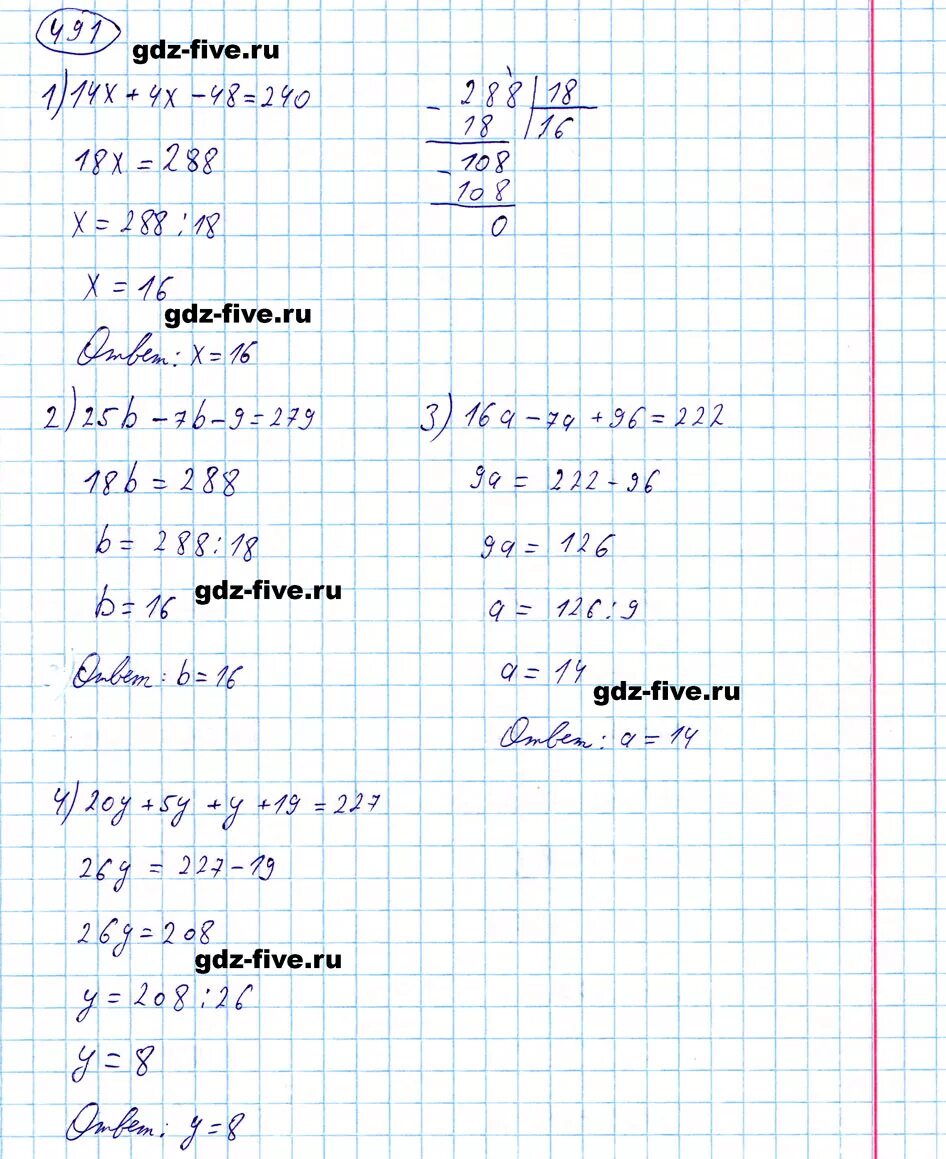 491
gdz-five.ru
1) 14x + 4x - 48 = 240
18x = 288
x = 288 : 18
x = 16
gdz-five.ru
Ответ: x = 16
- 288 | 18
18 | 16
- 108
108
0
2) 25b - 7b - 9 = 279
18b = 288
b = 288 : 18
b = 16
gdz-five.ru
Ответ: b = 16
3) 16a - 7a + 96 = 222
9a = 222 - 96
9a = 126
a = 126 : 9
a = 14
gdz-five.ru
Ответ: a = 14
4) 20y + 5y + y + 19 = 227
26y = 227 - 19
26y = 208
gdz-five.ru
y = 208 : 26
y = 8
Ответ: y = 8